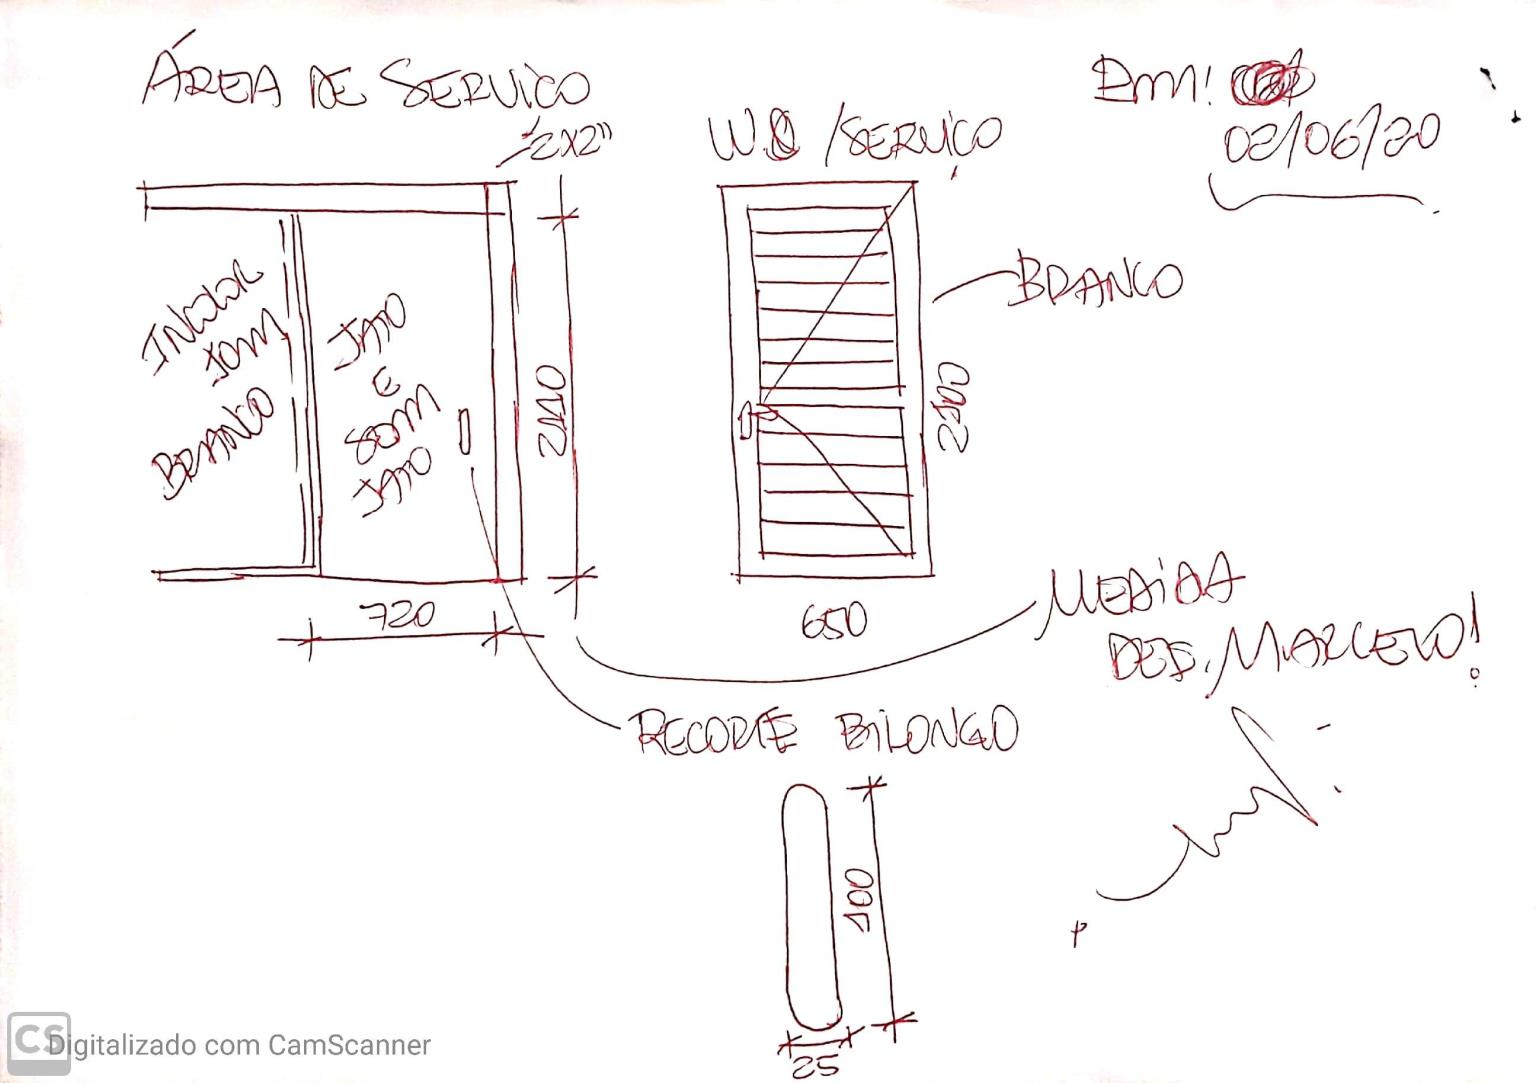 ÁREA DE SERVIÇO
2x2"
W.C /SERVIÇO
EM!
02/06/20
INCOLOR
BRANCO
JATO
E
SEM
JATO
2110
BRANCO
2100
720
650
MEDIDA
DES. MARCELO!
RECORTE BILONGO
100
25
CS Digitalizado com CamScanner